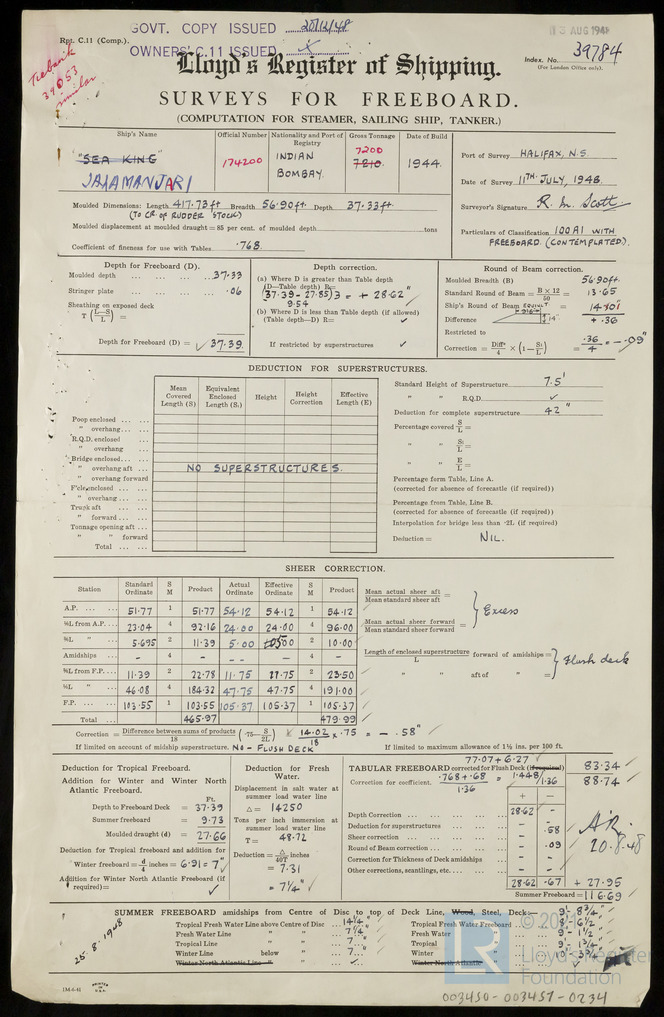 GOVT. COPY ISSUED 20/12/48
Rpt. C.11 (Comp.).
OWNERS' C.11 ISSUED X
3 AUG 194
Index. No. 39784
(For London Office only).
39053
similar
Lloyd's Register of Shipping.
SURVEYS FOR FREEBOARD.
(COMPUTATION FOR STEAMER, SAILING SHIP, TANKER.)
Ship's Name Official Number Nationality and Port of Registry Gross Tonnage Date of Build
"SEA KING"
JAJAMANJARI
174200 INDIAN BOMBAY. 7200 7210 1944.
Port of Survey HALIFAX, N.S.
Date of Survey 11TH JULY, 1948
Surveyor's Signature R. M. Scott
Particulars of Classification 100A1 WITH
FREEBOARD. (CONTEMPLATED).
Moulded Dimensions: Length 417.73 ft Breadth 56.90 ft. Depth 37.33 ft.
(TO CR. OF RUDDER STOCK)
Moulded displacement at moulded draught = 85 per cent. of moulded depth tons
Coefficient of fineness for use with Tables .768
Depth for Freeboard (D).
Moulded depth ... 37.33
Stringer plate ... .06
Sheathing on exposed deck
T (L-S/L) =
Depth for Freeboard (D) = 37.39
Depth correction.
(a) Where D is greater than Table depth
(D—Table depth) R=
(37.39 - 27.85) 3 = + 28.62"
9.54
(b) Where D is less than Table depth (if allowed)
(Table depth—D) R= ✓
If restricted by superstructures ✓
Round of Beam correction.
Moulded Breadth (B) 56.90 ft.
Standard Round of Beam = B × 12/50 = 13.65
Ship's Round of Beam EQUIVT = 14.01"
Difference + .36
Restricted to
Correction = Diffce/4 × (1 − S1/L) = .36/4 = -.09"
DEDUCTION FOR SUPERSTRUCTURES.
Mean Covered Length (S) Equivalent Enclosed Length (S1) Height Height Correction Effective Length (E)
Poop enclosed
" overhang
R.Q.D. enclosed
" overhang
Bridge enclosed
" overhang aft NO SUPERSTRUCTURES.
" overhang forward
F'cle enclosed
" overhang
Trunk aft
" forward
Tonnage opening aft
" " forward
Total
Standard Height of Superstructure 7.5'
" " R.Q.D. ✓
Deduction for complete superstructure 42"
Percentage covered S/L =
" " S1/L =
" " E/L =
Percentage form Table, Line A.
(corrected for absence of forecastle (if required))
Percentage from Table, Line B.
(corrected for absence of forecastle (if required))
Interpolation for bridge less than ·2L (if required)
Deduction = NIL.
SHEER CORRECTION.
Station Standard Ordinate S M Product Actual Ordinate Effective Ordinate S M Product
A.P. 51.77 1 51.77 54.12 54.12 1 54.12
⅙L from A.P. 23.04 4 92.16 24.00 24.00 4 96.00
⅓L " 5.695 2 11.39 5.00 500 2 10.00
Amidships - 4 - - - 4 -
⅓L from F.P. 11.39 2 22.78 11.75 11.75 2 23.50
⅙L " 46.08 4 184.32 47.75 47.75 4 191.00
F.P. 103.55 1 103.55 105.37 105.37 1 105.37
Total 465.97 479.99
Mean actual sheer aft / Mean standard sheer aft =
Mean actual sheer forward / Mean standard sheer forward = } Excess
Length of enclosed superstructure / L forward of amidships =
" " aft of " = } Flush deck
Correction = Difference between sums of products / 18 (·75 − S/2L) = 14.02/18 × .75 = - .58"
If limited on account of midship superstructure. NO - FLUSH DECK If limited to maximum allowance of 1½ ins. per 100 ft.
Deduction for Tropical Freeboard.
Addition for Winter and Winter North
Atlantic Freeboard.
Ft.
Depth to Freeboard Deck = 37.39
Summer freeboard = 9.73
Moulded draught (d) = 27.66
Deduction for Tropical freeboard and addition for
Winter freeboard = d/4 inches = 6.91 = 7"
Addition for Winter North Atlantic Freeboard (if
required) = ✓
Deduction for Fresh
Water.
Displacement in salt water at
summer load water line
Δ = 14250
Tons per inch immersion at
summer load water line
T = 48.72
Deduction = Δ/40T inches
= 7.31
= 7¼"
77.07 + 6.27
TABULAR FREEBOARD corrected for Flush Deck (if required) 83.34
Correction for coefficient. .768 + .68 / 1.36 = 1.448/1.36 88.74
+ −
Depth Correction 28.62 -
Deduction for superstructures - -
Sheer correction - .58
Round of Beam correction - .09
Correction for Thickness of Deck amidships - -
Other corrections, scantlings, etc. - -
28.62 .67 + 27.95
Summer Freeboard = 116.69
20.8.48
SUMMER FREEBOARD amidships from Centre of Disc to top of Deck Line, Wood, Steel, Deck: 9'- 8¾"
Tropical Fresh Water Line above Centre of Disc 14¼" Tropical Fresh Water Freeboard 8'- 6½"
Fresh Water Line " " 7¼" Fresh Water " 9'- 1½"
Tropical Line " " 7" Tropical " 9'- 1¾"
Winter Line below " 7" Winter " 10'- 3¾"
Winter North Atlantic Line " " ✓ Winter North Atlantic " ✓
25.8.1948
1M-6-41 PRINTED IN U.S.A.
Lloyd's Register
Foundation
003450-003457-0234